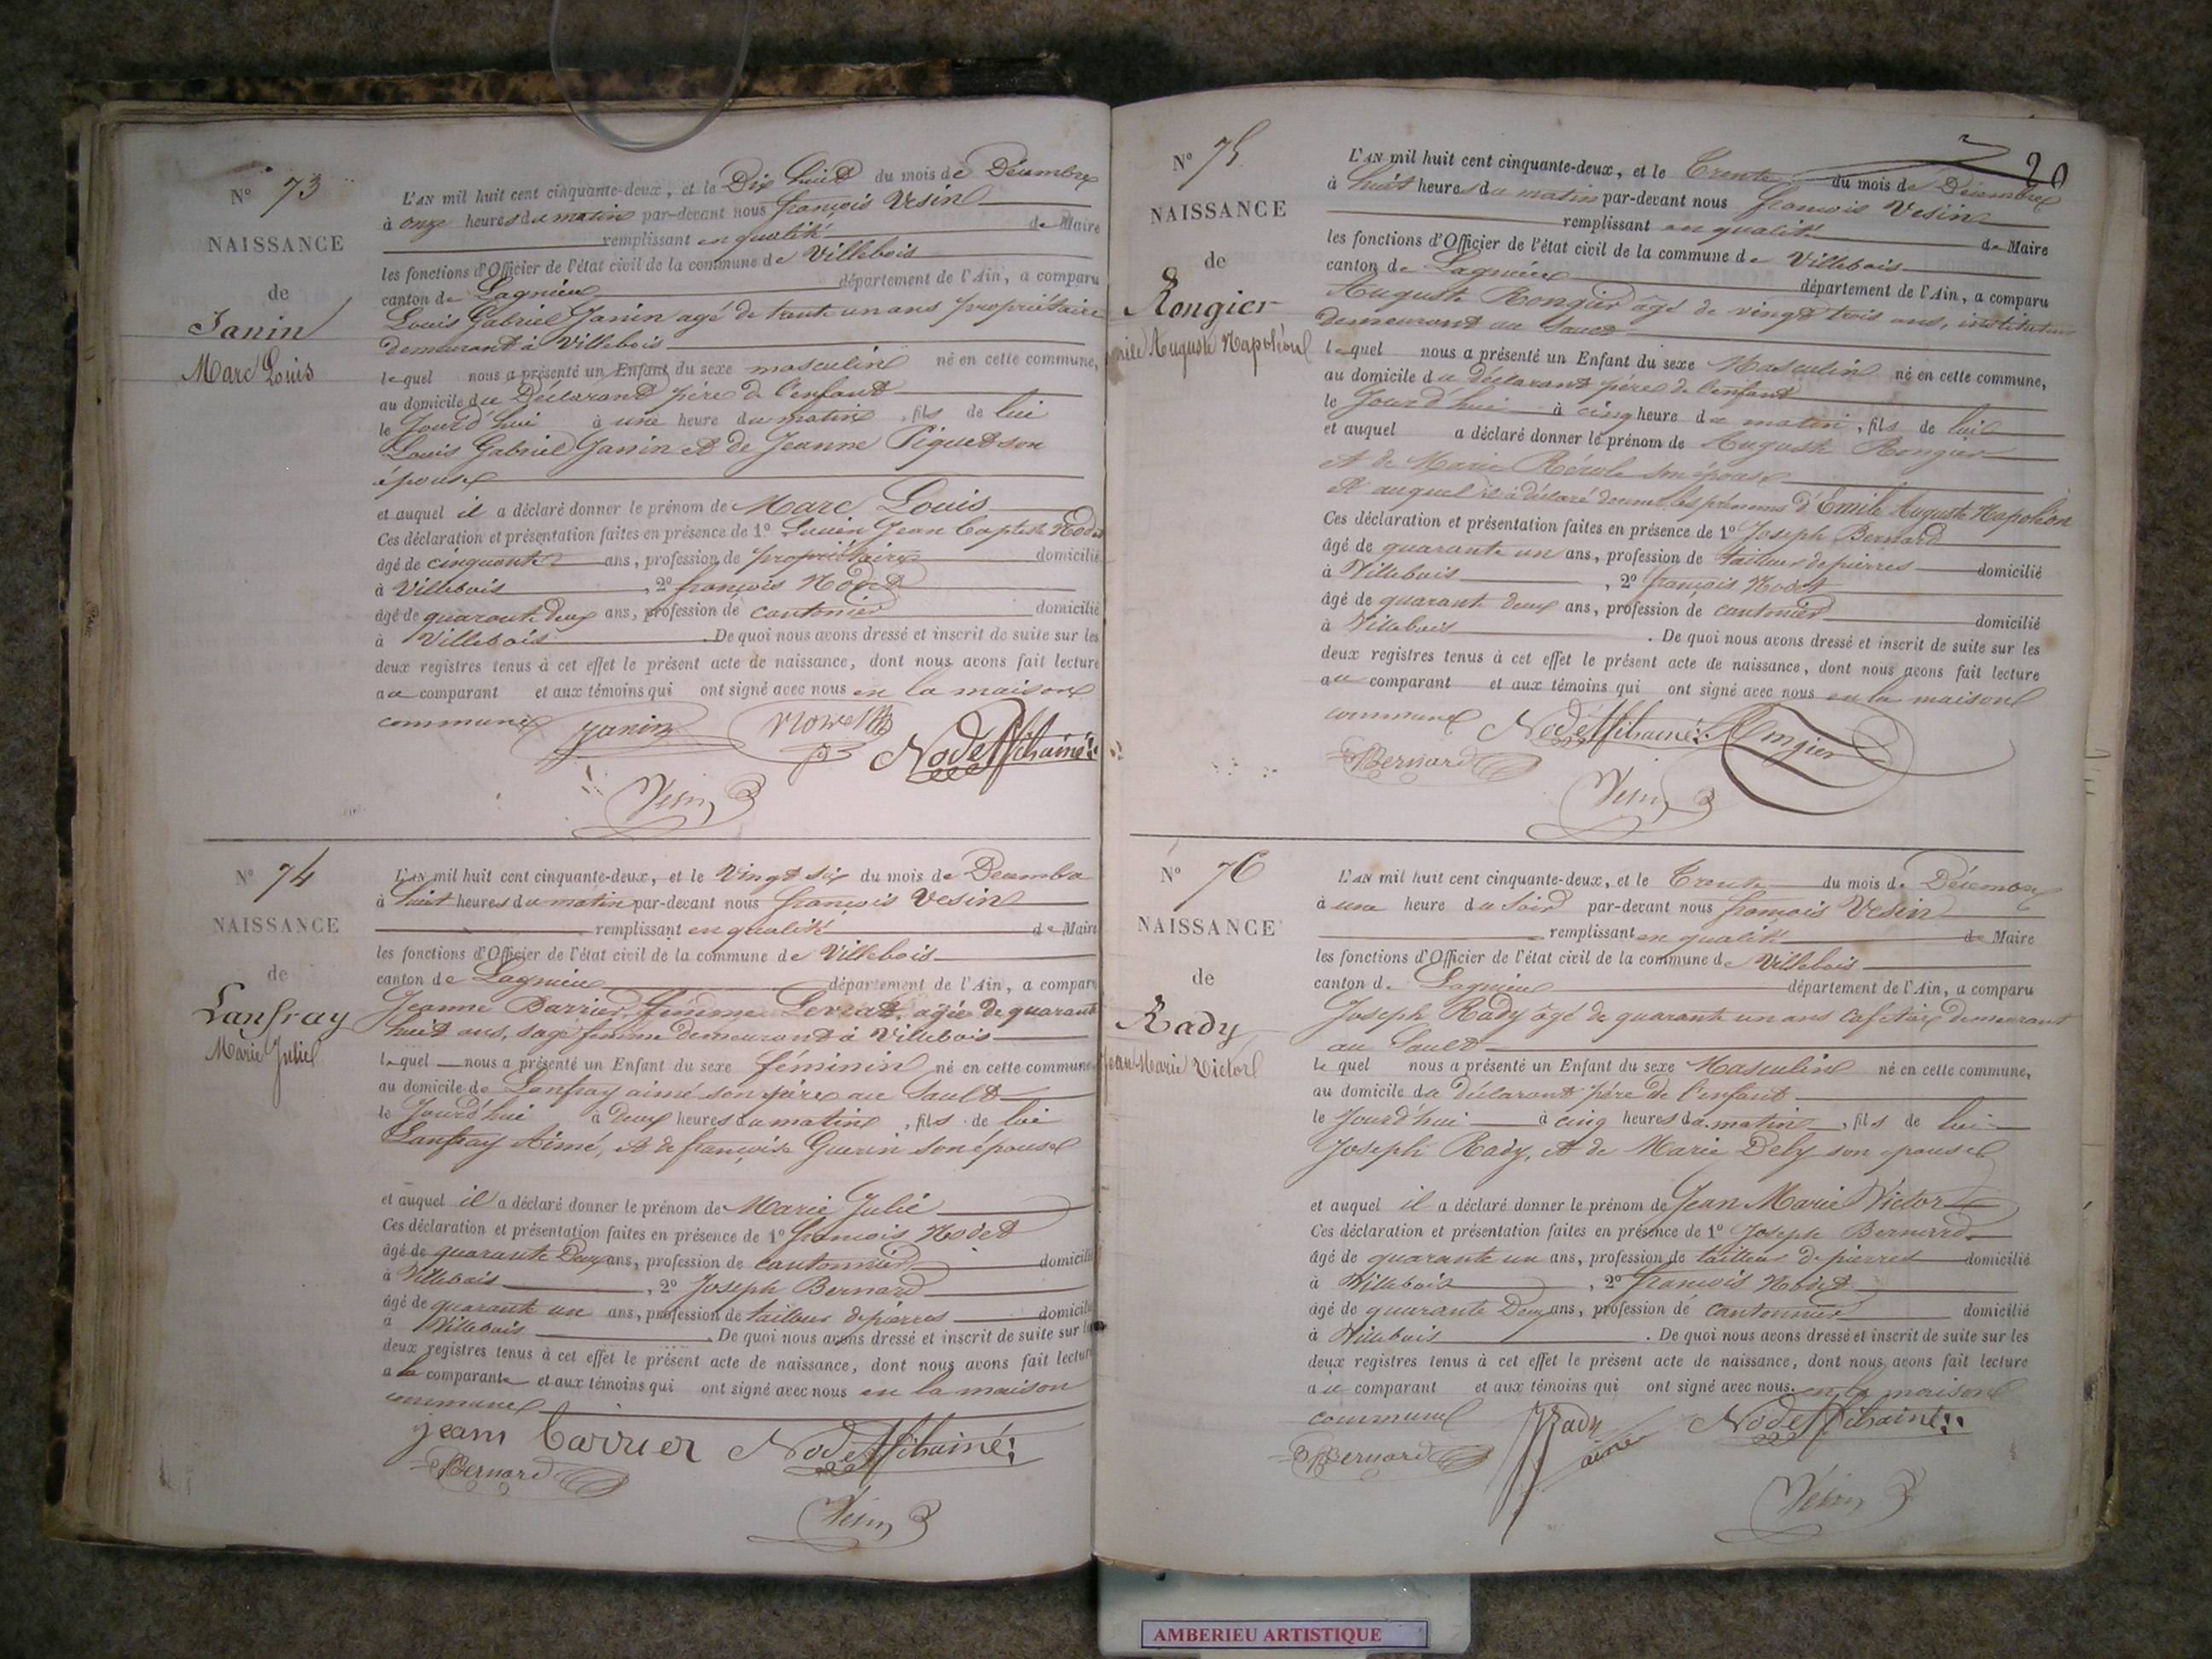 N° 73
NAISSANCE
de
Janin
Marc Louis
L'AN mil huit cent cinquante-deux, et le Dix huit du mois de Décembre
à onze heures du matin par-devant nous françois Vesin
remplissant en qualité de Maire
les fonctions d'Officier de l'état civil de la commune de Villebois
canton de Lagnieu département de l'Ain, a comparu
Louis Gabriel Janin agé de trente un ans propriétaire
demeurant à Villebois
lequel nous a présenté un Enfant du sexe masculin né en cette commune,
au domicile du Déclarant père de l'enfant
le Jourd'hui à une heure du matin, fils de lui
Louis Gabriel Janin et de Jeanne Piguet son
épouse
et auquel il a déclaré donner le prénom de Marc Louis
Ces déclaration et présentation faites en présence de 1° Lucien Jean Baptiste Nodet
âgé de cinquante ans, profession de propriétaire domicilié
à Villebois, 2° françois Nodet
âgé de quarante deux ans, profession de cantonier domicilié
à Villebois. De quoi nous avons dressé et inscrit de suite sur les
deux registres tenus à cet effet le présent acte de naissance, dont nous avons fait lecture
au comparant et aux témoins qui ont signé avec nous en la maison
commune
Janin
Vesin
N° 74
NAISSANCE
de
Lanfray
Marie Julie
L'AN mil huit cent cinquante-deux, et le Vingt six du mois de Décembre
à huit heures du matin par-devant nous françois Vesin
remplissant en qualité de Maire
les fonctions d'Officier de l'état civil de la commune de Villebois
canton de Lagnieu département de l'Ain, a comparu
Jeanne Barrier, femme Levrat, agée de quarante
huit ans, sage femme demeurant à Villebois
lequel nous a présenté un Enfant du sexe féminin né en cette commune
au domicile de Lanfray aimé son père au Sault
le Jourd'hui à Deux heures du matin, fils de lui
Lanfray Aimé, et de françoise Guerin son épouse
et auquel il a déclaré donner le prénom de Marie Julie
Ces déclaration et présentation faites en présence de 1° françois Nodet
âgé de quarante Deux ans, profession de cantonnier domicilié
à Villebois, 2° Joseph Bernard
âgé de quarante un ans, profession de tailleur de pierres domicilié
à Villebois. De quoi nous avons dressé et inscrit de suite sur les
deux registres tenus à cet effet le présent acte de naissance, dont nous avons fait lecture
a la comparante et aux témoins qui ont signé avec nous en la maison
commune
Bernard
Vesin
N° 75
NAISSANCE
de
Rongier
Emile Auguste Napoléon
20
L'AN mil huit cent cinquante-deux, et le Trente du mois de Décembre
à huit heures du matin par-devant nous françois Vesin
remplissant en qualité de Maire
les fonctions d'Officier de l'état civil de la commune de Villebois
canton de Lagnieu département de l'Ain, a comparu
Auguste Rongier agé de vingt trois ans, instituteur
demeurant au Sault
lequel nous a présenté un Enfant du sexe Masculin né en cette commune,
au domicile du déclarant père de l'enfant
le Jourd'hui à cinq heure du matin, fils de lui
et auquel a déclaré donner le prénom de Auguste Rongier
et de Marie Rérole son épouse
et auquel il a déclaré donner les prénoms d'Émile Auguste Napoléon
Ces déclaration et présentation faites en présence de 1° Joseph Bernard
âgé de quarante un ans, profession de tailleur de pierres domicilié
à Villebois, 2° françois Nodet
âgé de quarante deux ans, profession de cantonnier domicilié
à Villebois. De quoi nous avons dressé et inscrit de suite sur les
deux registres tenus à cet effet le présent acte de naissance, dont nous avons fait lecture
au comparant et aux témoins qui ont signé avec nous en la maison
commune Rongier
Bernard
Vesin
N° 76
NAISSANCE
de
Rady
Jean Marie Victor
L'AN mil huit cent cinquante-deux, et le Trente du mois de Décembre
à une heure du Soir par-devant nous françois Vesin
remplissant en qualité de Maire
les fonctions d'Officier de l'état civil de la commune de Villebois
canton de Lagnieu département de l'Ain, a comparu
Joseph Rady agé de quarante un ans Cafetier demeurant
au Sault
lequel nous a présenté un Enfant du sexe Masculin né en cette commune,
au domicile du déclarant père de l'enfant
le Jourd'hui à cinq heures du matin, fils de lui
Joseph Rady, et de Marie Deby son épouse
et auquel il a déclaré donner le prénom de Jean Marie Victor
Ces déclaration et présentation faites en présence de 1° Joseph Bernard
âgé de quarante un ans, profession de tailleur de pierres domicilié
à Villebois, 2° françois Nodet
âgé de quarante Deux ans, profession de cantonnier domicilié
à Villebois. De quoi nous avons dressé et inscrit de suite sur les
deux registres tenus à cet effet le présent acte de naissance, dont nous avons fait lecture
au comparant et aux témoins qui ont signé avec nous en la maison
commune Rady
Bernard
Vesin
AMBERIEU ARTISTIQUE